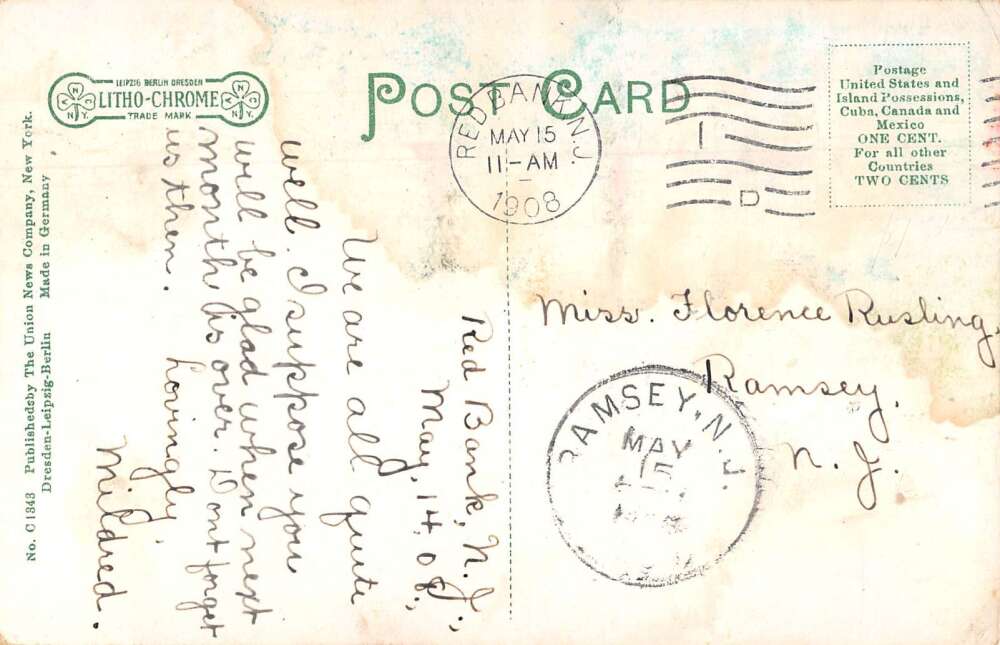 No. C1343 Publishedsby The Union News Company, New York.
Dresden-Leipzig-Berlin Made in Germany
LEIPZIG BERLIN DRESDEN
LITHO-CHROME
TRADE MARK
N
A
C
N.Y.
N
A
C
N.Y.
POST CARD
RED BANK N.J.
MAY 15
11-AM
1908
1
D
Postage
United States and
Island Possessions,
Cuba, Canada and
Mexico
ONE CENT.
For all other
Countries
TWO CENTS
Red Bank, N.J.,
May, 14,
We are all quite
well. I suppose you
will be glad when next
month is over. Dont forget
us then. Lovingly,
Mildred.
Miss. Florence Rusling,
Ramsey,
N. J.
RAMSEY, N.J.
MAY
15